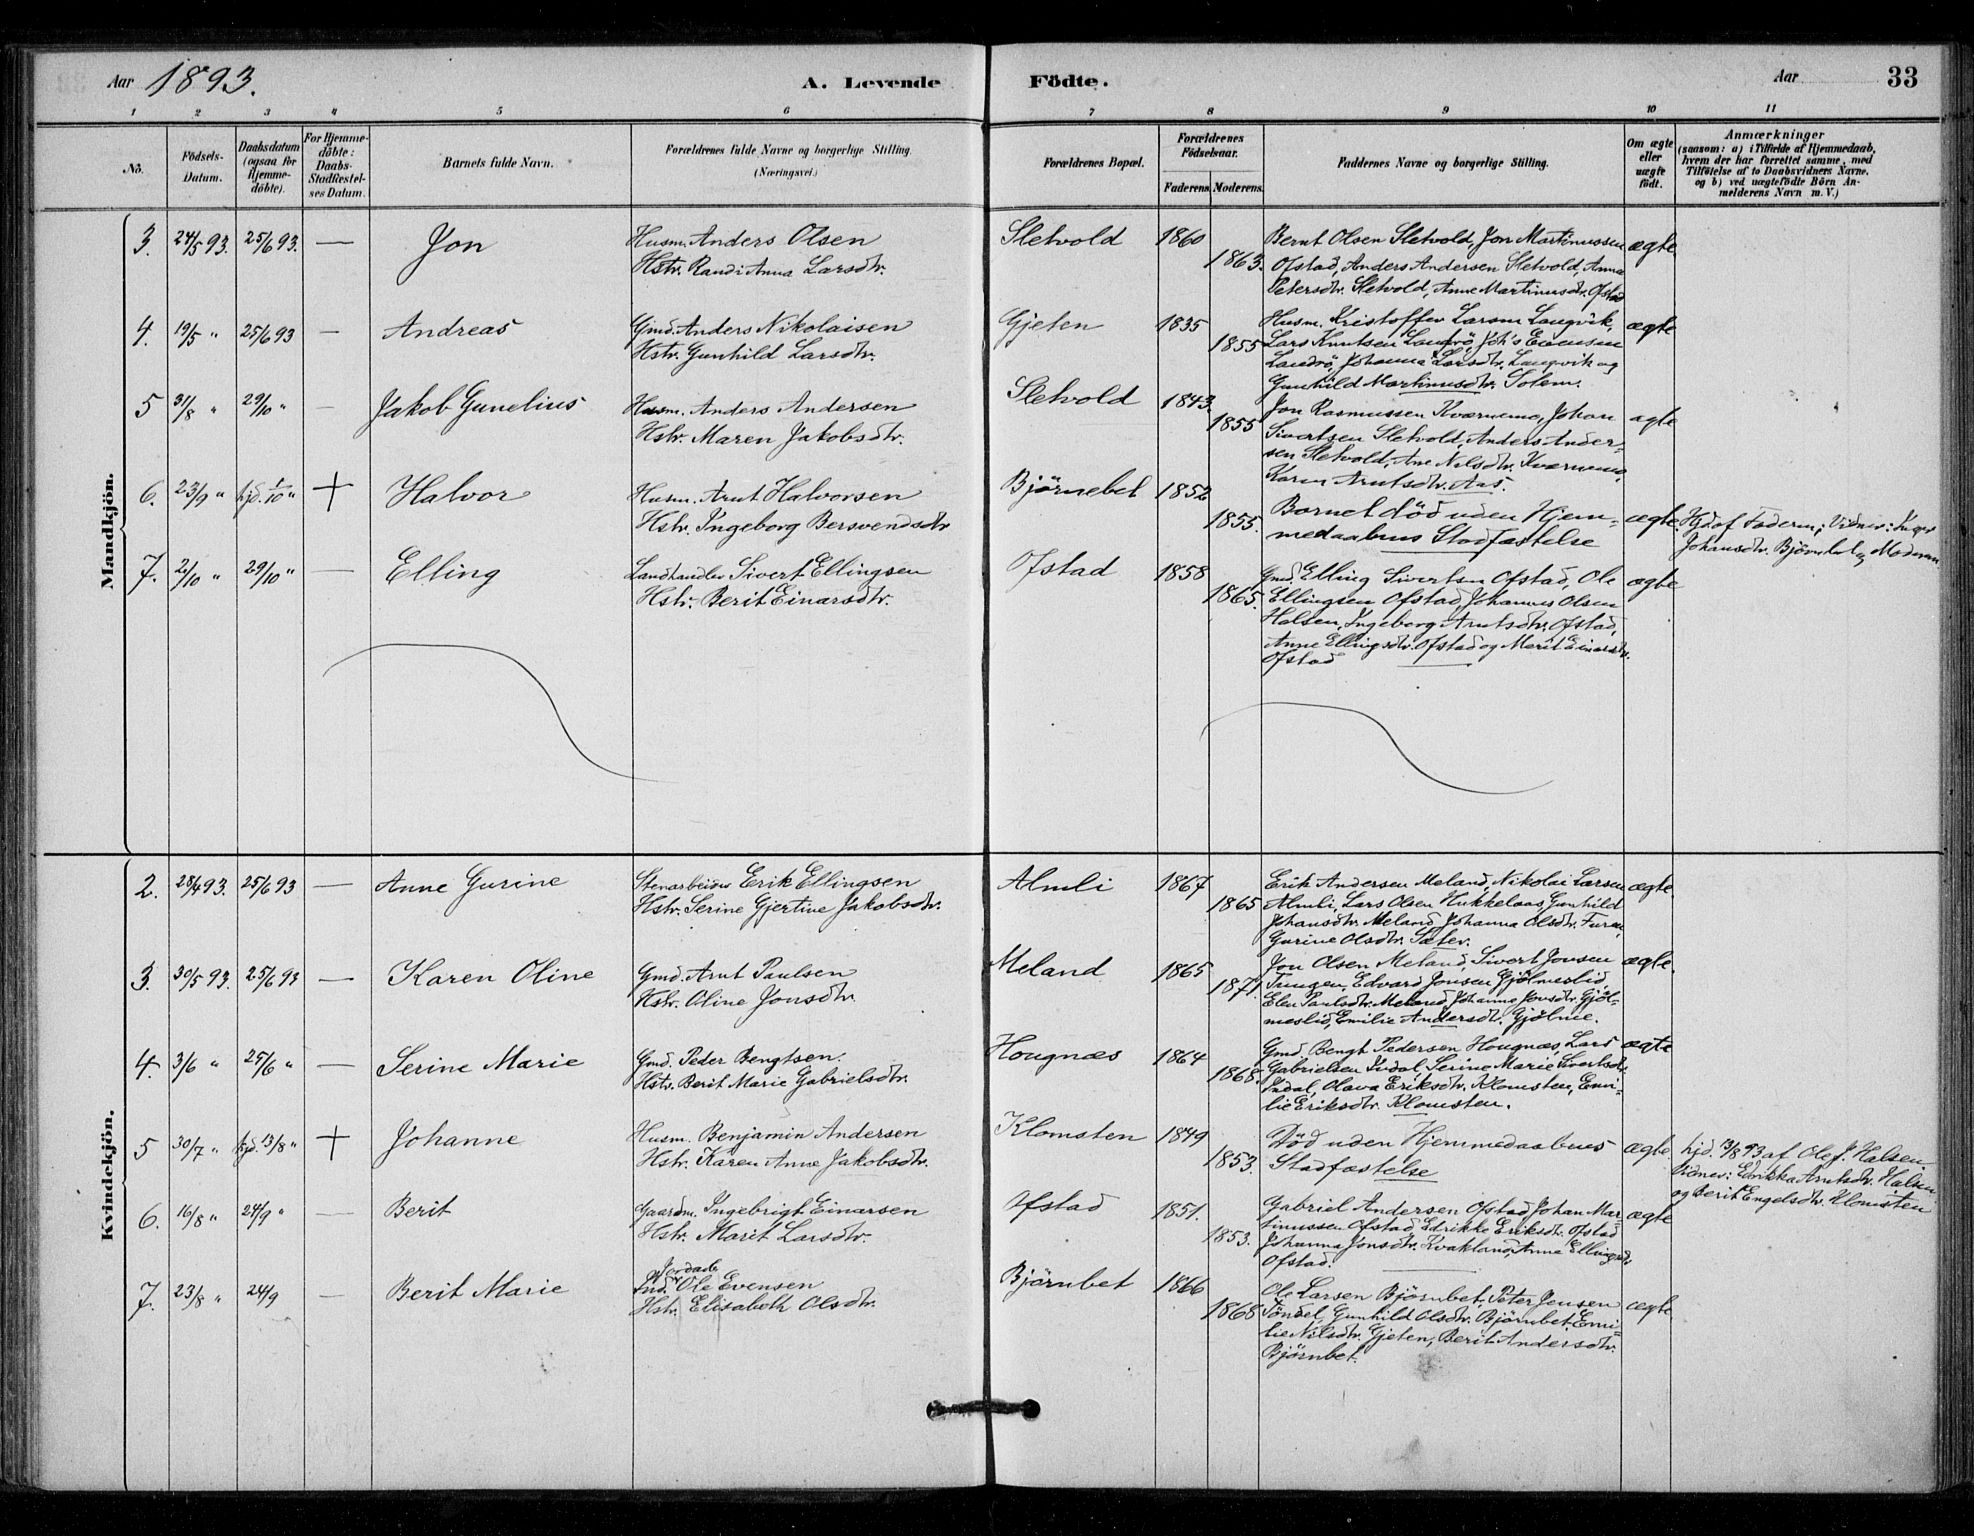 Aar 1893.
A. Levende Födte.
Aar
33
1 2 3 4 5 6 7 8 9 10 11
No.
Födsels-
Datum.
Daabsdatum
(ogsaa for
Hjemme-
döbte).
For Hjemme-
döbte:
Daabs-
Stadfæstel-
ses Datum.
Barnets fulde Navn.
Forældrenes fulde Navne og borgerlige Stilling.
(Næringsvei.)
Forældrenes Bopæl.
Forældrenes
Födselsaar.
Faderens. Moderens.
Faddernes Navne og borgerlige Stilling.
Om ægte
eller
uægte
födt.
Anmærkninger
(saasom: a) i Tilfælde af Hjemmedaab,
hvem der har forrettet samme, med
Tilföielse af to Daabsvidners Navne,
og b) ved uægtefödte Börn An-
melderens Navn m. V.)
Mandkjön.
3. 24/5 93. 25/6 93. — Jon
Husm. Anders Olsen
Hstr. Randi Anna Larsdtr.
Sletvold 1860
1863.
Bernt Olsen Sletvold, Jon Martinussen
Ofstad, Anders Andersen Sletvold, Anna
Petersdtr. Sletvold, Anne Martinusdtr. Ofstad
ægte
4. 19/5 " 25/6 93 — Andreas
Gjmd. Anders Nikolaisen
Hstr. Gunhild Larsdtr.
Gjeten 1835
1855
Husm. Kristoffer Larsen Langvik,
Lars Knutsen Landrö, Joh's Evensen
Landrö, Johanna Larsdtr. Langvik og
Gunhild Martinusdtr. Solem.
ægte
5 31/8 " 29/10 " — Jakob Gunelius
Husm. Anders Andersen
Hstr. Maren Jakobsdtr.
Sletvold 1843.
1855
Jon Rasmussen Kværnmo, Johan
Sivertsen Sletvold, Anders Ander-
sen Sletvold, Ane Nilsdtr. Kværnmo,
Karen Arntsdtr. Aas.
ægte
6. 23/9 " hjd. 1/10 " + Halvor
Husm. Arnt Halvorsen
Hstr. Ingeborg Bersvendsdtr
Björnebet 1852
1855.
Barnet död uden Hjem-
medaabens Stadfæstelse
ægte.
Hjd af Faderen; Vidner: Inger
Johansdtr. Björnbet og Moderen
7. 2/10 " 29/10 " — Elling
Landhandler Sivert Ellingsen
Hstr. Berit Einarsdtr.
Ofstad 1858
1865.
Gmd. Elling Sivertsen Ofstad, Ole
Ellingsen Ofstad, Johannes Olsen
Halsen, Ingeborg Arntsdtr. Ofstad,
Anne Ellingsdtr. Ofstad og Merit Einarsdtr.
Ofstad
ægte
Kvindekjön.
2. 28/4 93. 25/6 93 — Anne Gurine
Stenarbeider Erik Ellingsen
Hstr. Serine Gjertine Jakobsdtr.
Almli 1867
1865
Erik Andersen Meland, Nikolai Larsen
Almli, Lars Olsen Hukkelaas, Gunhild
Johansdtr. Meland, Johanna Olsdtr. Furen,
Gurine Olsdtr. Sæter.
ægte.
3. 30/5 93. 25/6 93 — Karen Oline
Gmd. Arnt Paulsen
Hstr. Oline Jonsdtr.
Meland 1865
1871.
Jon Olsen Meland, Sivert Jonsen
Tungen, Edvard Jonsen Gjölmeslid,
Elen Paulsdtr. Meland, Johanna Jonsdtr. Gjöl-
meslid, Emilie Andersdtr. Gjölme.
ægte.
4. 3/6 " 25/6 " — Serine Marie
Gmd. Peder Bengtsen.
Hstr. Berit Marie Gabrielsdtr.
Hougnæs 1864
1868.
Gmd. Bengt Pedersen Hougnæs, Lars
Gabrielsen Indal, Serine Marie Sivertsdtr.
Indal, Olava Eriksdtr. Klomsten, Emi-
lie Eriksdtr. Klomsten.
ægte
5 30/7 " hjd. 13/8 " + Johanne
Husm. Benjamin Andersen
Hstr. Karen Anne Jakobsdtr.
Klomsten 1849
1853.
Död uden Hjemmedaabens
Stadfæstelse
ægte.
hjd. 13/8 93 af Ole J. Halsen
Vidner: Edrikka Arntsdtr. Halsen
og Berit Engelsdtr. Klomsten
6. 16/8 " 24/9 " — Berit
Gaardm. Ingebrigt Einarsen
Hstr. Marit Larsdtr.
Ofstad 1851.
1853.
Gabriel Andersen Ofstad, Johan Mar-
tinussen Ofstad, Edrikke Eriksdtr. Ofstad
Johanna Jonsdtr. Kvakland, Anna Ellingsdtr.
Ofstad.
ægte
7. 23/8 " 24/9 — Berit Marie
Ind. Ole Evensen
Hstr. Elisabeth Olsdtr.
Björnbet 1866
1868
Ole Larsen Björnbet, Peter Jensen
Töndel, Gunhild Olsdtr. Björnbet, Emi-
lie Nilsdtr. Gjeten, Berit Andersdtr.
Björnbet.
ægte